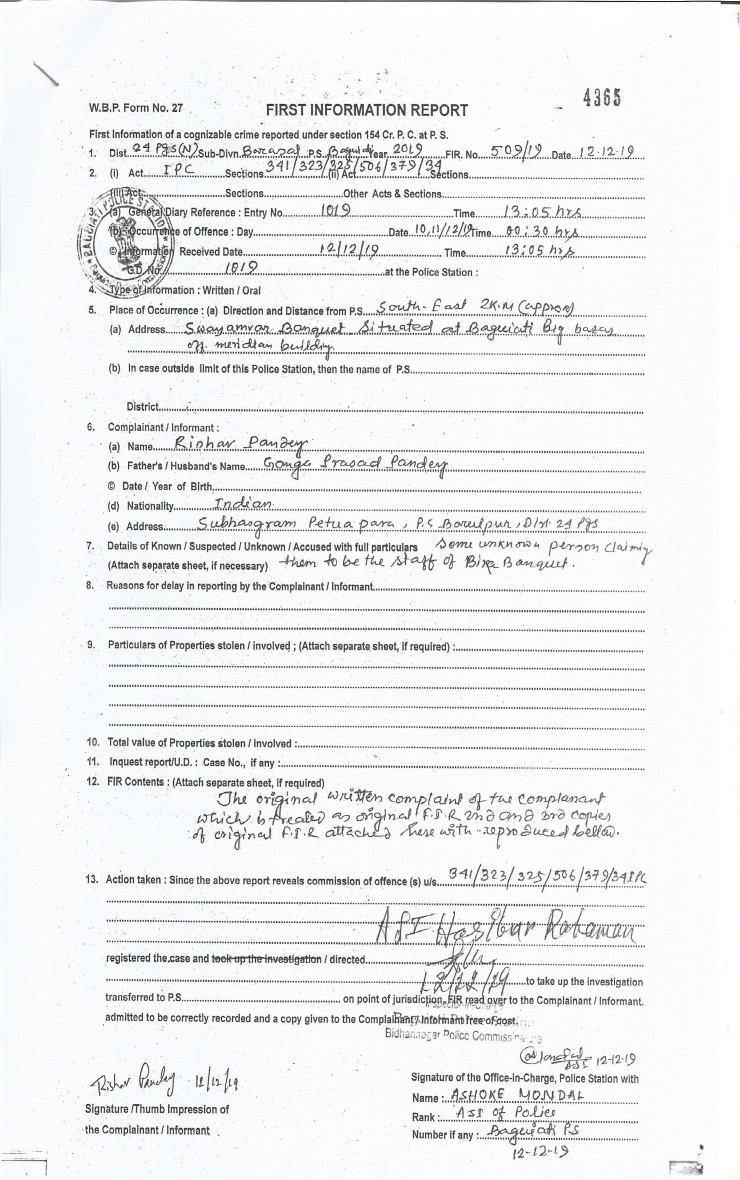 4365
W.B.P. Form No. 27 FIRST INFORMATION REPORT
First Information of a cognizable crime reported under section 154 Cr. P. C. at P. S.
1. Dist. 24 Pgs(N) Sub-Divn. Barasat P.S. Baguiati Year 2019 FIR. No. 509/19 Date 12-12-19
2. (i) Act IPC Sections 341/323/325/506/379/34 (ii) Act Sections
(iii) Act Sections Other Acts & Sections
3. (a) General Diary Reference : Entry No. 1019 Time 13:05 hrs
(b) Occurrence of Offence : Day Date 10,11/12/19 Time 00:30 hrs
© Information Received Date 12/12/19 Time 13:05 hrs
G.D. No. 1019 at the Police Station :
4. Type of Information : Written / Oral
5. Place of Occurrence : (a) Direction and Distance from P.S. South-East 2K.M (approx)
(a) Address Swayamvar Banquet Situated at Baguiati big bazar
off meridian building.
(b) In case outside limit of this Police Station, then the name of P.S.
District
6. Complainant / Informant :
(a) Name Rishav Pandey
(b) Father's / Husband's Name Gonga Prasad Pandey
© Date / Year of Birth
(d) Nationality Indian
(e) Address Subhasgram Petua para, P.S Baruipur, Dist 24 Pgs
7. Details of Known / Suspected / Unknown / Accused with full particulars Some unknown person claiming
(Attach separate sheet, if necessary) them to be the staff of Banquet.
8. Reasons for delay in reporting by the Complainant / Informant
9. Particulars of Properties stolen / involved ; (Attach separate sheet, if required) :
10. Total value of Properties stolen / involved :
11. Inquest report/U.D. : Case No., if any :
12. FIR Contents : (Attach separate sheet, if required)
The original written complaint of the complanant
which is treated as original F.I.R 2nd and 3rd copies
of original F.I.R attached here with reproduced bellow.
13. Action taken : Since the above report reveals commission of offence (s) u/s. 341/323/325/506/379/34 IPC
ASI Hasibur Rahaman
registered the case and took up the investigation / directed
12/12/19 to take up the investigation
transferred to P.S. on point of jurisdiction, FIR read over to the Complainant / Informant.
admitted to be correctly recorded and a copy given to the Complaint / Informant free of cost.
Bidhannagar Police Commissionerate
12-12-19
Rishav Pandey 12/12/19
Signature of the Office-in-Charge, Police Station with
Name : ASHOKE MONDAL
Signature /Thumb Impression of
Rank : ASI of Police
the Complainant / Informant
Number if any : Baguiati PS
12-12-19